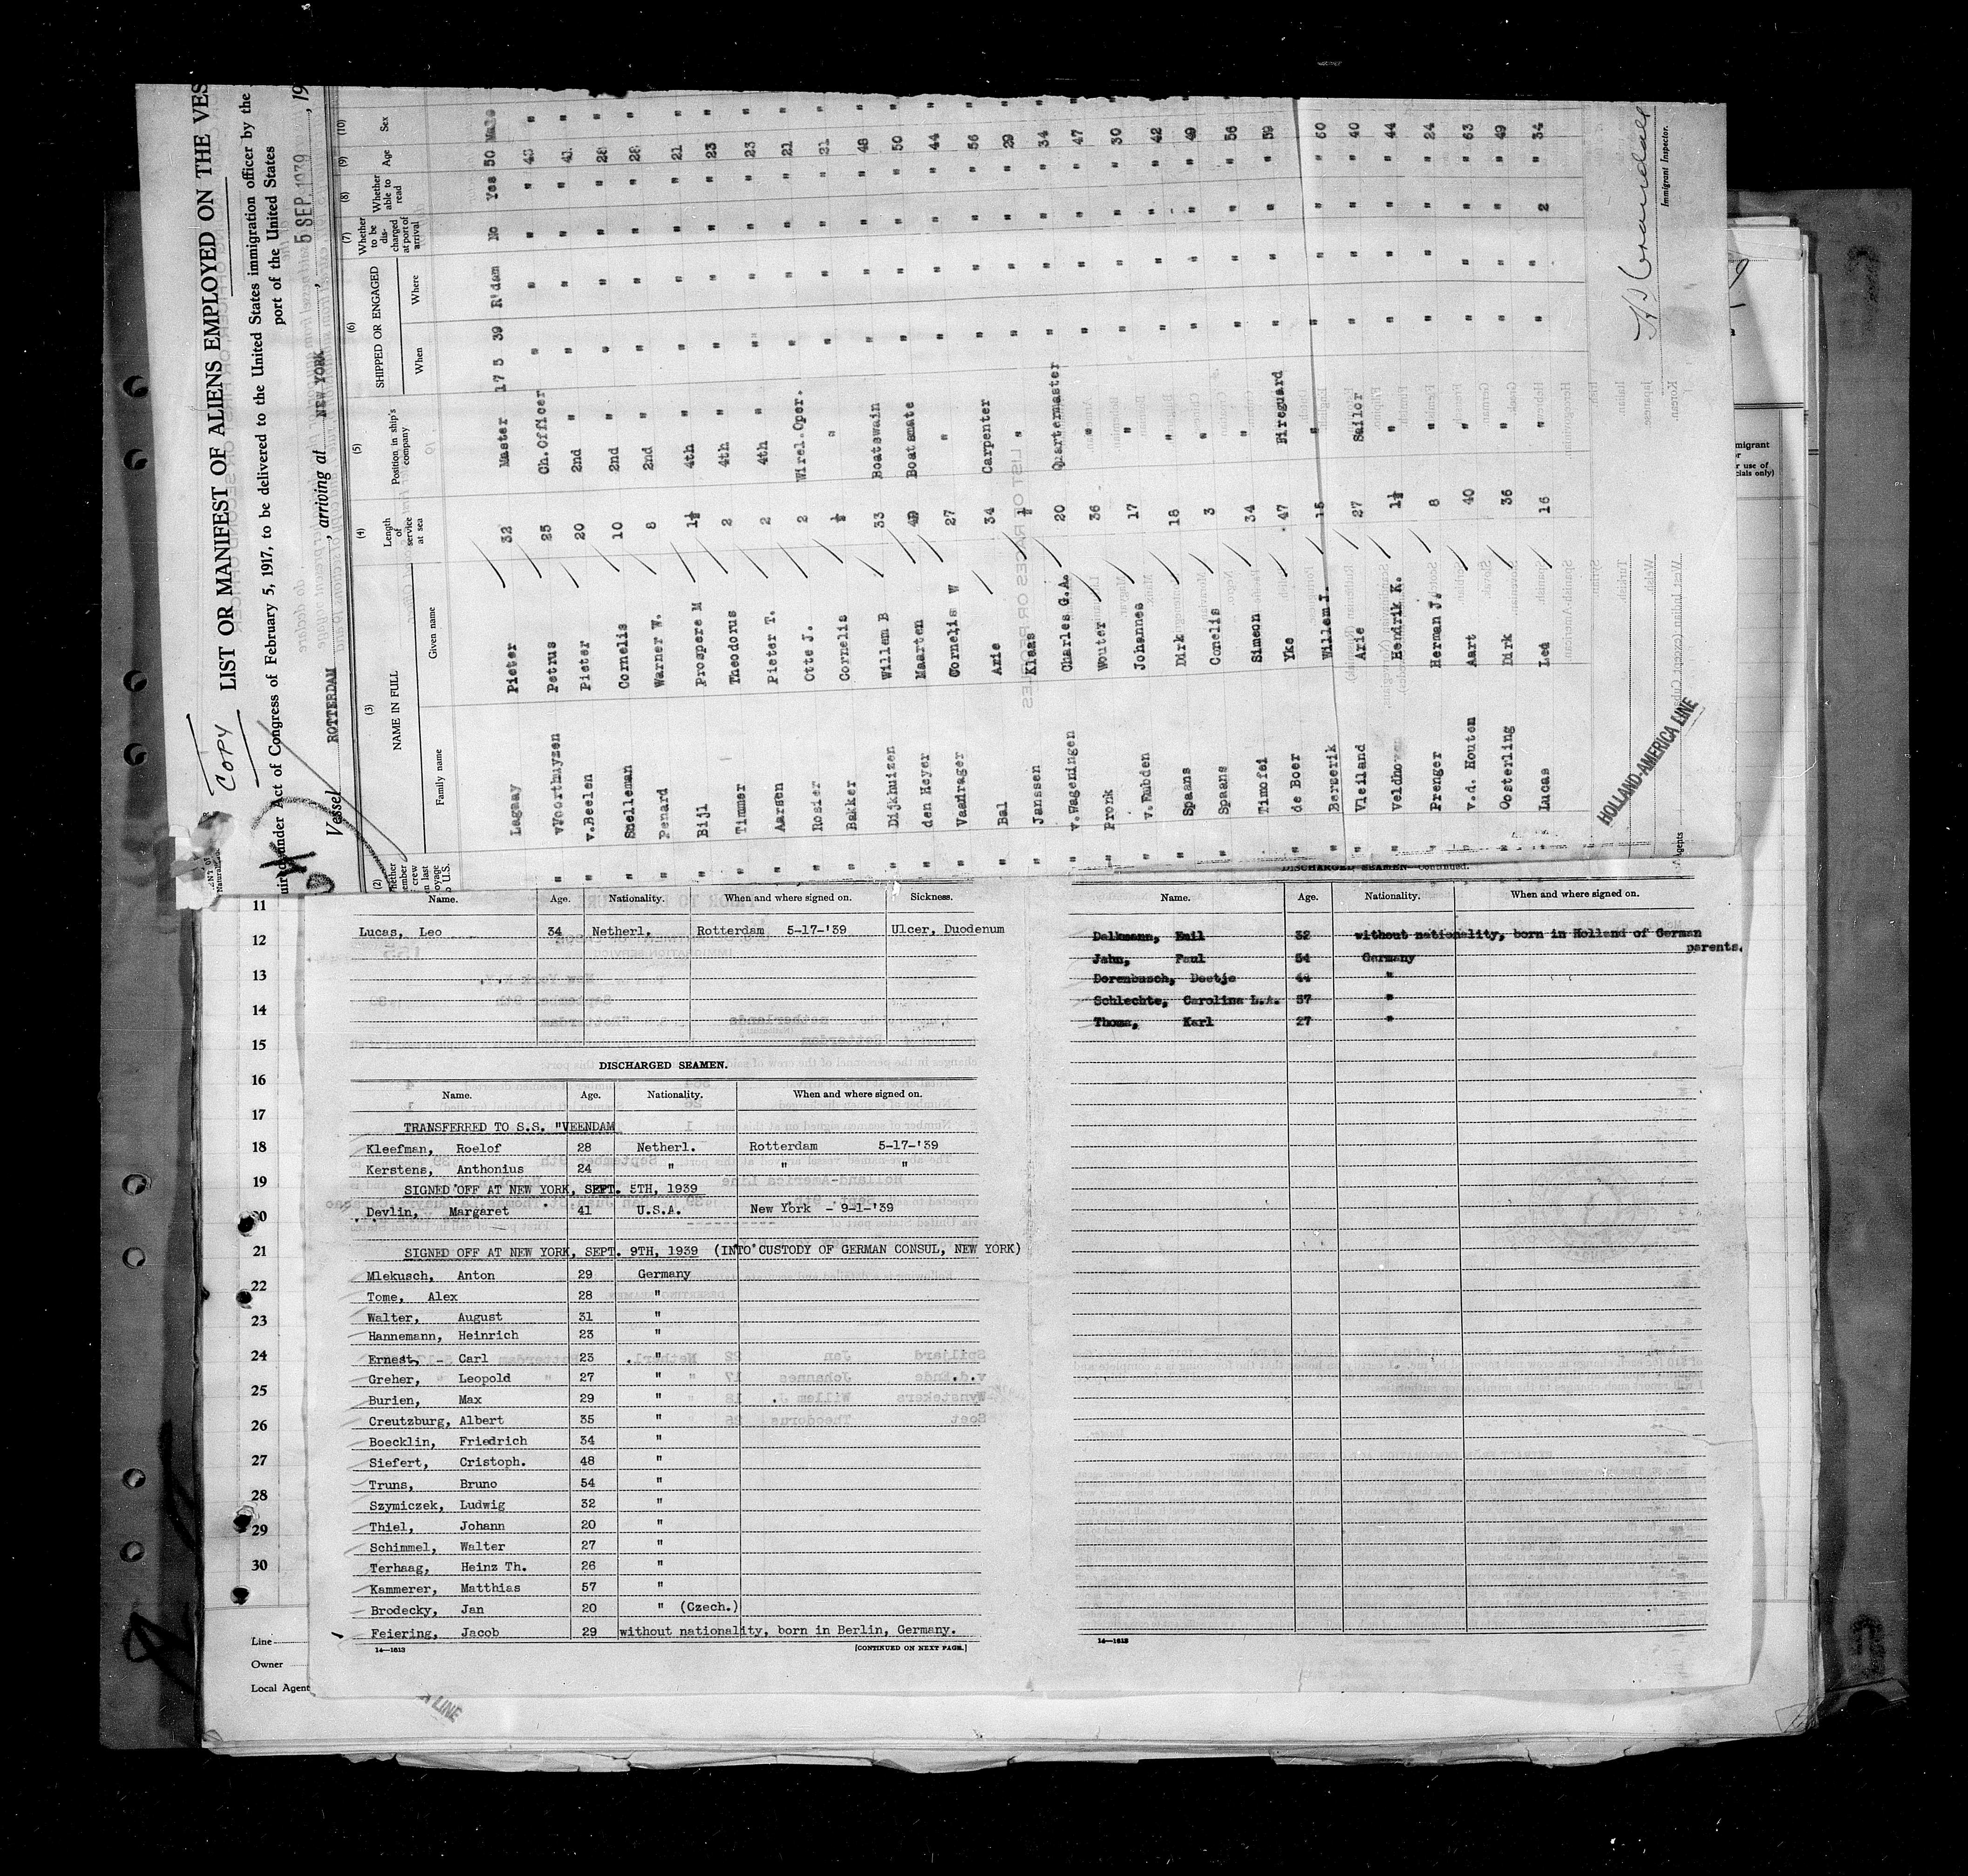 COPY
LIST OR MANIFEST OF ALIENS EMPLOYED ON THE VES
under Act of Congress of February 5, 1917, to be delivered to the United States immigration officer by the
port of the United States
Vessel ROTTERDAM, arriving at NEW YORK, 5 SEP. 1939, 19
(2) (3) (4) (5) (6) (7) (8) (9) (10)
NAME IN FULL
Family name Given name
Length of service at sea
Position in ship's company
SHIPPED OR ENGAGED
When Where
Whether to be discharged at port of arrival
Whether able to read
Age
Sex
Lagaay Pieter 32 Master 17 5 39 R'dam No Yes 50 Male
" vVoorthuyzen Petrus 25 Ch.Officer " " " "
" v.Beelen Pieter 20 2nd " " " " " 41 "
" Snelleman Cornelis 10 2nd " " " " " 28 "
" Penard Warner W. 8 2nd " " " " " 28 "
" Bijl Prospere M 1½ 4th " " " " " 21 "
" Timmer Theodorus 2 4th " " " " " 23 "
" Aarsen Pieter T. 2 4th " " " " " 23 "
" Rosier Otte J. 2 Wirel.Oper. " " " " 21 "
" Bakker Cornelis ½ " " " " " 21 "
" Dijkhuizen Willem B 33 Boatswain " " " " 48 "
" den Heyer Maarten Boatsmate " " " " 50 "
" Vaandrager Cornelis W 27 " " " " " 44 "
" Bal Arie 34 Carpenter " " " " 56 "
" Janssen Klaas ½ " " " " " 29 "
" v.Wageningen Charles G.A. 20 Quartermaster " " " " 34 "
" Pronk Wouter 36 " " " " " 47 "
" v.Embden Johannes 17 " " " " " 30 "
" Spaans Dirk 18 " " " " " 42 "
" Spaans Cornelis 3 " " " " " 49 "
" Timofei Simeon 34 " " " " " 56 "
" de Boer Yke 47 Fireguard " " " " 59 "
" Berzerik Willem I. 15 " " " " " 60 "
" Vleiland Arie 27 Sailor " " " " 40 "
" Veldhoven Hendrik K. 1½ " " " " " 44 "
" Prenger Herman J. 8 " " " " " 24 "
" v.d. Houten Aart 40 " " " " " 63 "
" Oosterling Dirk 36 " " " " " 49 "
" Lucas Leo 16 " " " 2 " 34 "
HOLLAND-AMERICA LINE
Agents
Immigrant Inspector.
11
12
13
14
15
16
17
18
19
20
21
22
23
24
25
26
27
28
29
30
Line
Owner
Local Agent
Name. Age. Nationality. When and where signed on. Sickness.
Lucas, Leo 34 Netherl. Rotterdam 5-17-'39 Ulcer, Duodenum
DISCHARGED SEAMEN.
Name. Age. Nationality. When and where signed on.
TRANSFERRED TO S.S. "VEENDAM
Kleefman, Roelof 28 Netherl. Rotterdam 5-17-'39
Kerstens, Anthonius 24 " " "
SIGNED OFF AT NEW YORK, SEPT. 5TH, 1939
Devlin, Margaret 41 U.S.A. New York - 9-1-'39
SIGNED OFF AT NEW YORK, SEPT. 9TH, 1939 (INTO CUSTODY OF GERMAN CONSUL, NEW YORK)
Mlekusch, Anton 29 Germany
Tome, Alex 28 "
Walter, August 31 "
Hannemann, Heinrich 23 "
Ernest, - Carl 23 "
Greher, Leopold 27 "
Burien, Max 29 "
Creutzburg, Albert 35 "
Boecklin, Friedrich 34 "
Siefert, Cristoph. 48 "
Truns, Bruno 54 "
Szymiczek, Ludwig 32 "
Thiel, Johann 20 "
Schimmel, Walter 27 "
Terhaag, Heinz Th. 26 "
Kammerer, Matthias 57 "
Brodecky, Jan 20 " (Czech.)
Feiering, Jacob 29 without nationality, born in Berlin, Germany.
14—1613 [CONTINUED ON NEXT PAGE.]
DISCHARGED SEAMEN—Continued.
Name. Age. Nationality. When and where signed on.
Dalkmann, Emil 32 without nationality, born in Holland of German
parents.
Jahn, Paul 54 Germany
Dorenbusch, Deetje 44 "
Schlechte, Carolina L.A. 57 "
Thoma, Karl 27 "
14—1613
LINE